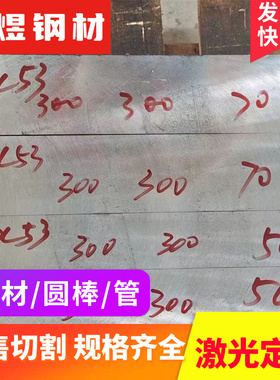 煜钢材
发
快
L53 300 300 70
L53 300 300 70
L53 300 300 50
300 50
材/圆棒/管
售切割 规格齐全
激光定